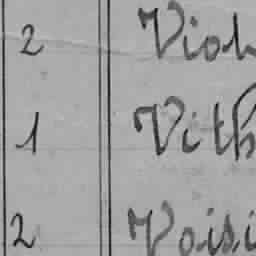 2 Viol
1 Vith
2 Voisi